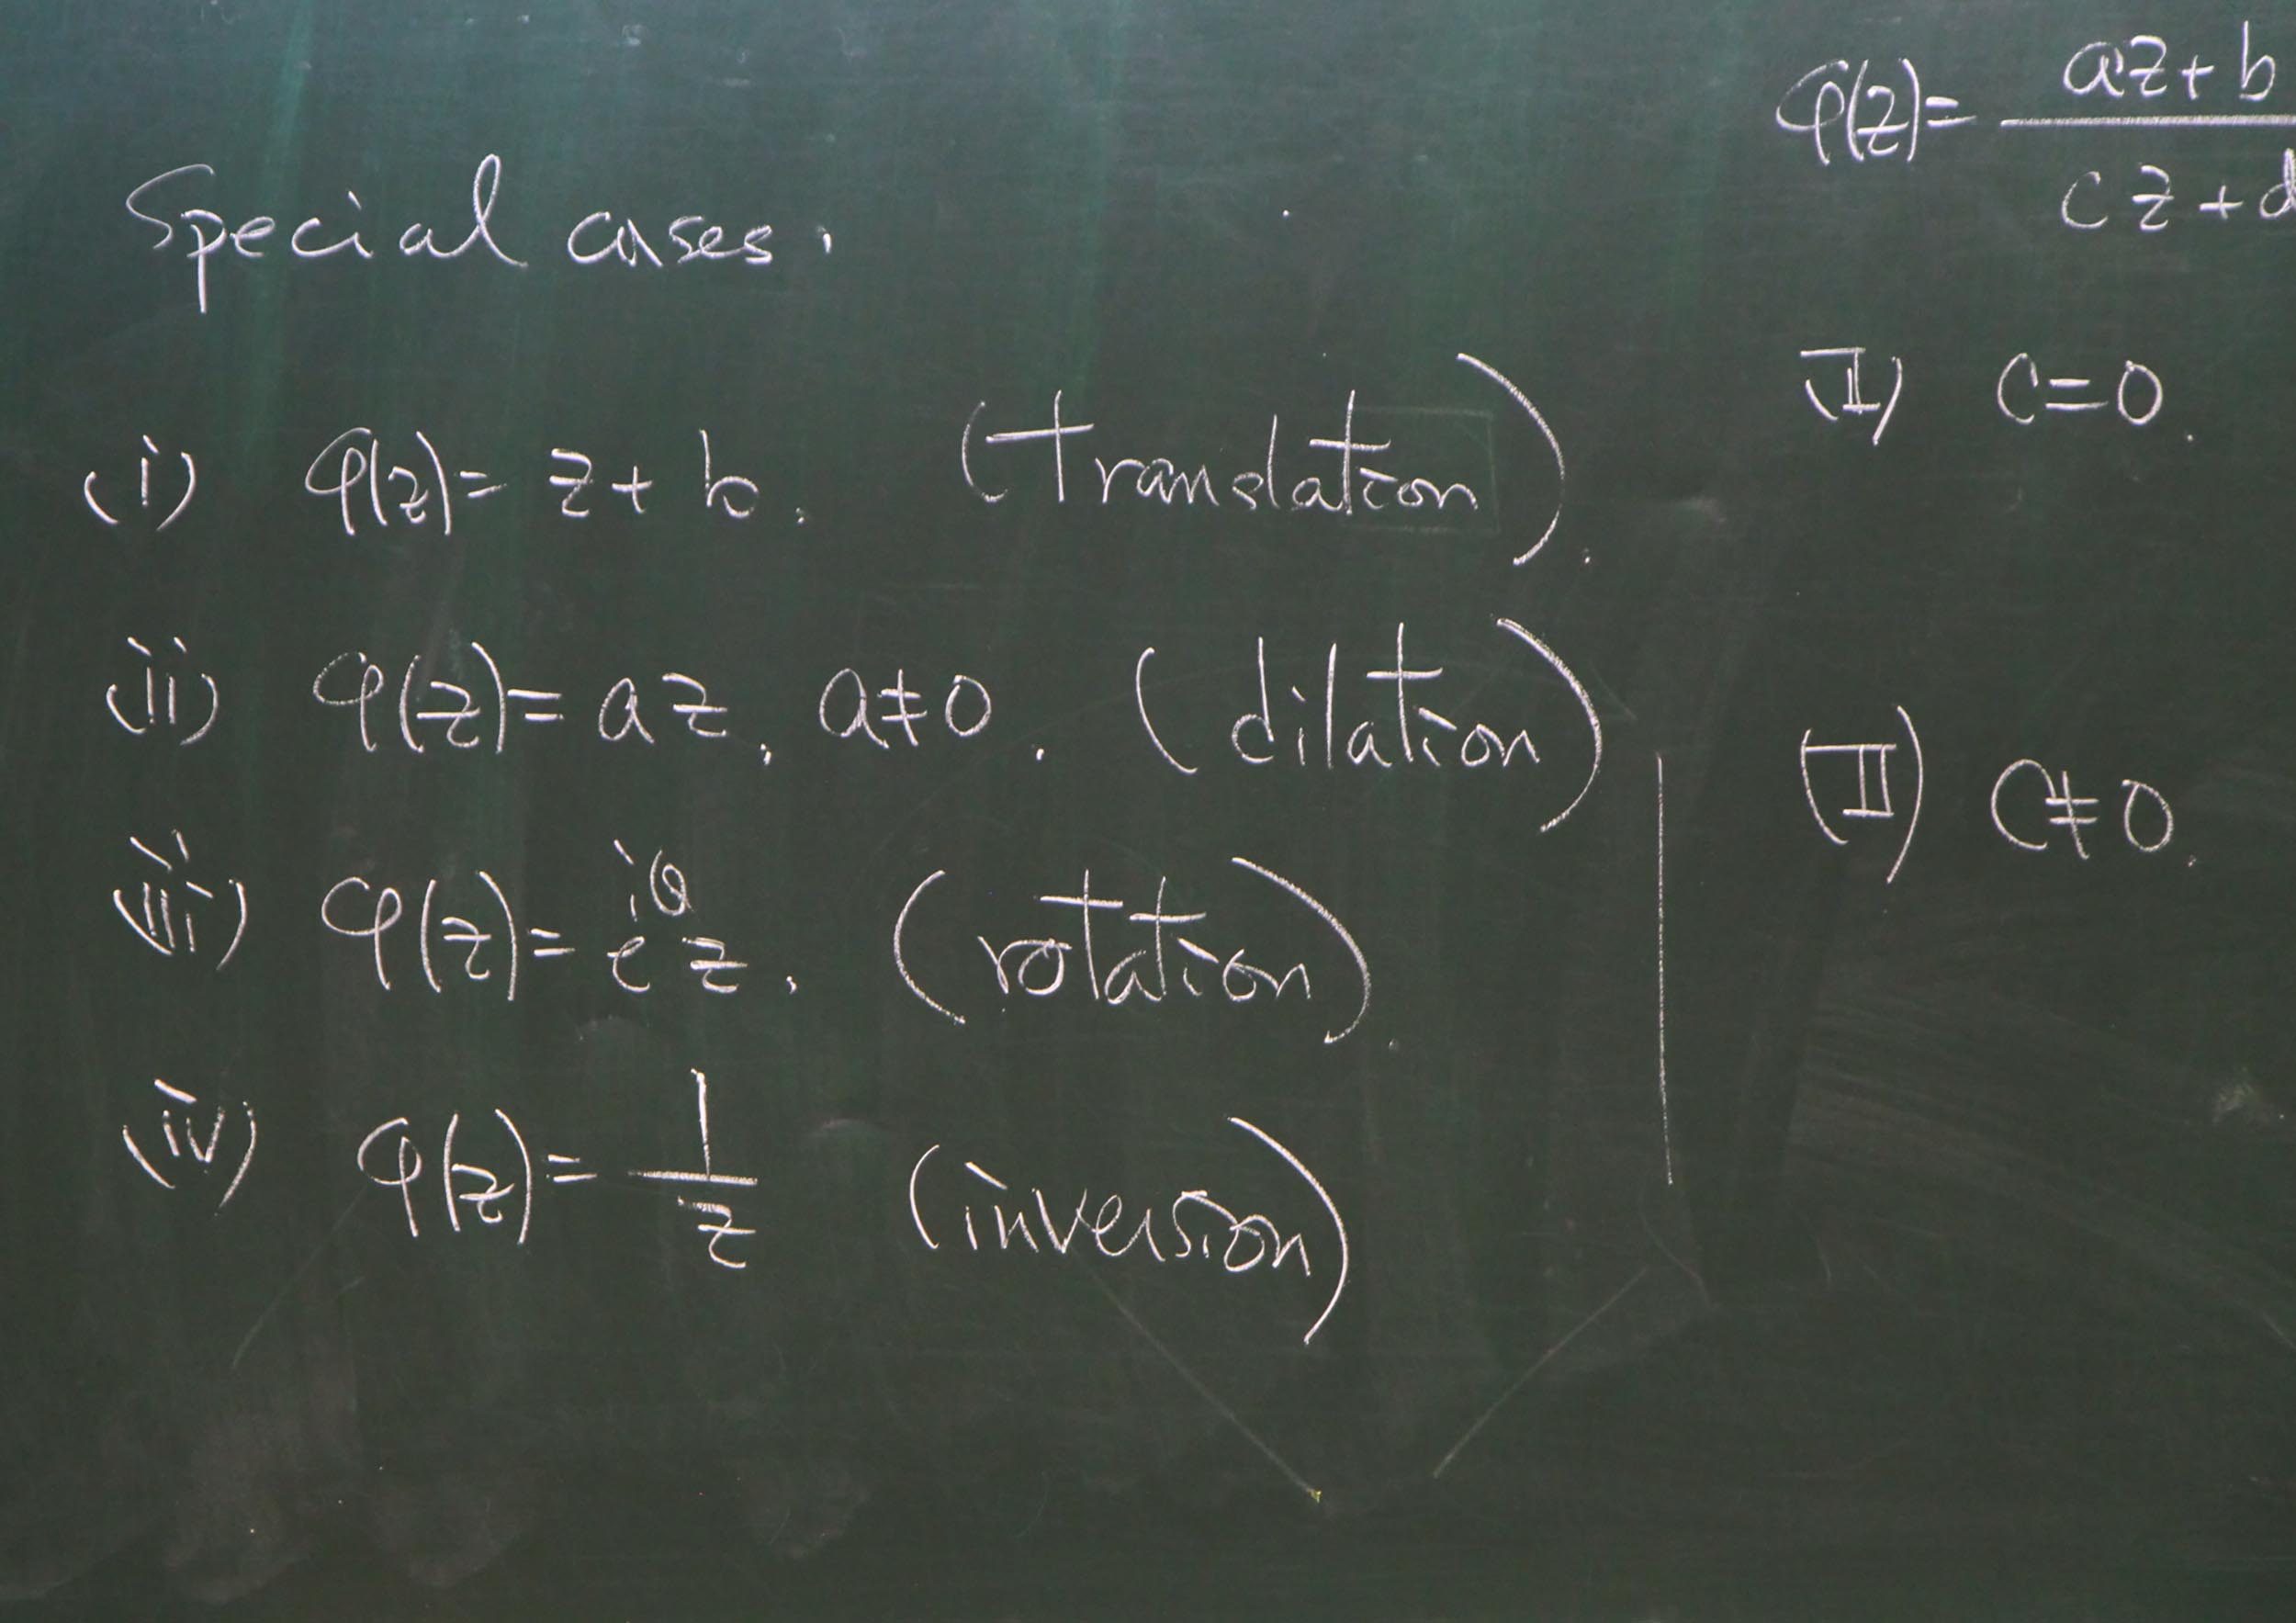 Special cases.
(i) φ(z)= z+b. (translation).
(ii) φ(z)= az, a≠0. (dilation)
(iii) φ(z)= e^{iθ} z. (rotation).
(iv) φ(z)= 1/z (inversion)
φ(z)= (az+b)/(cz+d
(I) c=0.
(II) c≠0.